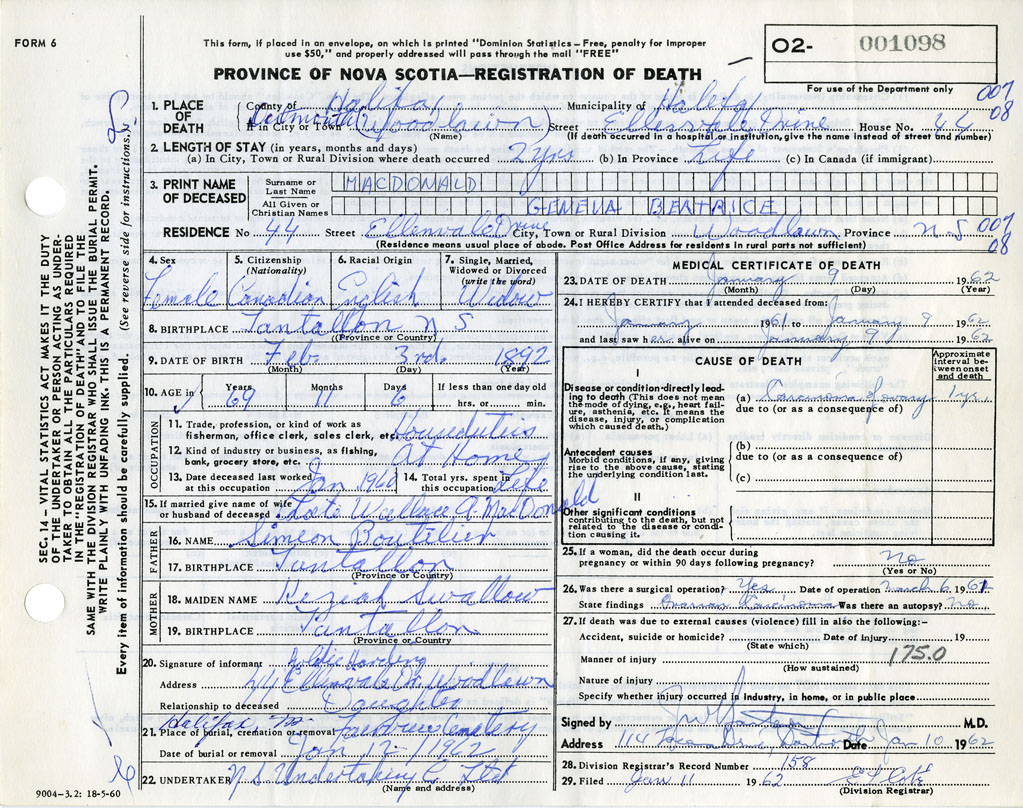 FORM 6
This form, if placed in an envelope, on which is printed "Dominion Statistics – Free, penalty for improper
use $50," and properly addressed will pass through the mail "FREE"
O2- 001098
For use of the Department only
PROVINCE OF NOVA SCOTIA—REGISTRATION OF DEATH
SEC. 14 – VITAL STATISTICS ACT MAKES IT THE DUTY
OF THE UNDERTAKER OR PERSON ACTING AS UNDER-
TAKER TO OBTAIN ALL THE PARTICULARS REQUIRED
IN THE "REGISTRATION OF DEATH" AND TO FILE THE
SAME WITH THE DIVISION REGISTRAR WHO SHALL ISSUE THE BURIAL PERMIT.
WRITE PLAINLY WITH UNFADING INK. THIS IS A PERMANENT RECORD.
Every item of information should be carefully supplied. (See reverse side for instructions.)
1. PLACE OF DEATH
County of Halifax Municipality of Halifax 007
If in City or Town Dartmouth (Woodlawn) Street Ellenvale Drive House No. 44 08
(Name) (If death occurred in a hospital or institution, give the name instead of street and number)
2. LENGTH OF STAY (in years, months and days)
(a) In City, Town or Rural Division where death occurred 2 yrs (b) In Province Life (c) In Canada (if immigrant)
3. PRINT NAME OF DECEASED
Surname or Last Name MACDONALD
All Given or Christian Names GENEVA BEATRICE
RESIDENCE No 44 Street Ellenvale Drive City, Town or Rural Division Woodlawn Province N.S 007
08
(Residence means usual place of abode. Post Office Address for residents in rural parts not sufficient)
4. Sex 5. Citizenship (Nationality) 6. Racial Origin 7. Single, Married, Widowed or Divorced (write the word)
Female Canadian English Widow
8. BIRTHPLACE Tantallon N S
(Province or Country)
9. DATE OF BIRTH Feb 3rd 1892
(Month) (Day) (Year)
10. AGE in Years 69 Months 11 Days 6 If less than one day old hrs. or min.
OCCUPATION
11. Trade, profession, or kind of work as
fisherman, office clerk, sales clerk, etc. Houseduties
12. Kind of industry or business, as fishing,
bank, grocery store, etc. At Home
13. Date deceased last worked at this occupation Jan 1960 14. Total yrs. spent in this occupation Life
15. If married give name of wife
or husband of deceased Late Wallace A MacDonald
FATHER
16. NAME Simeon Boutilier
17. BIRTHPLACE Tantallon
(Province or Country)
MOTHER
18. MAIDEN NAME Keziah Swallow
19. BIRTHPLACE Tantallon
(Province or Country)
20. Signature of informant Goldie Harding
Address 44 Ellenvale Dr. Woodlawn
Relationship to deceased Daughter
Halifax
21. Place of burial, cremation or removal Fairview Cemetery
Date of burial or removal Jan 12 - 1962
22. UNDERTAKER N. S. Undertaking Co Ltd
(Name and address)
9004–3.2: 18-5-60
MEDICAL CERTIFICATE OF DEATH
23. DATE OF DEATH January 9 1962
(Month) (Day) (Year)
24. I HEREBY CERTIFY that I attended deceased from:
January 1961 to January 9 1962
and last saw her alive on January 9 1962
CAUSE OF DEATH
Approximate interval between onset and death
I
Disease or condition directly lead-
ing to death (This does not mean
the mode of dying, e.g., heart fail-
ure, asthenia, etc. It means the
disease, injury, or complication
which caused death.)
(a) Carcinoma of ovary 1 yr.
due to (or as a consequence of)
Antecedent causes
Morbid conditions, if any, giving
rise to the above cause, stating
the underlying condition last.
(b)
due to (or as a consequence of)
(c)
II
Other significant conditions
contributing to the death, but not
related to the disease or condi-
tion causing it.
25. If a woman, did the death occur during
pregnancy or within 90 days following pregnancy? No
(Yes or No)
26. Was there a surgical operation? Yes Date of operation March 6 1961
State findings Ovarian Carcinoma Was there an autopsy? No
27. If death was due to external causes (violence) fill in also the following:–
Accident, suicide or homicide? Date of injury 19
(State which)
Manner of injury 175.0
(How sustained)
Nature of injury
Specify whether injury occurred in industry, in home, or in public place
Signed by M.D.
Address 114 Dartmouth Date Jan 10 1962
28. Division Registrar's Record Number 158
29. Filed Jan 11 1962
(Division Registrar)